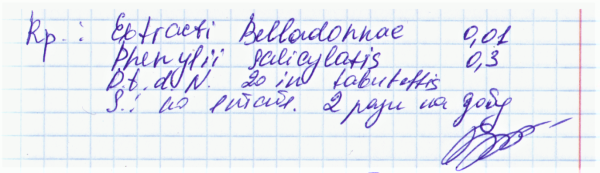 Rp.: Extracti Belladonnae 0,01
Phenylii salicylatis 0,3
D.t.d.N. 20 in tabulettis
S.: по 1 табл. 2 рази на добу